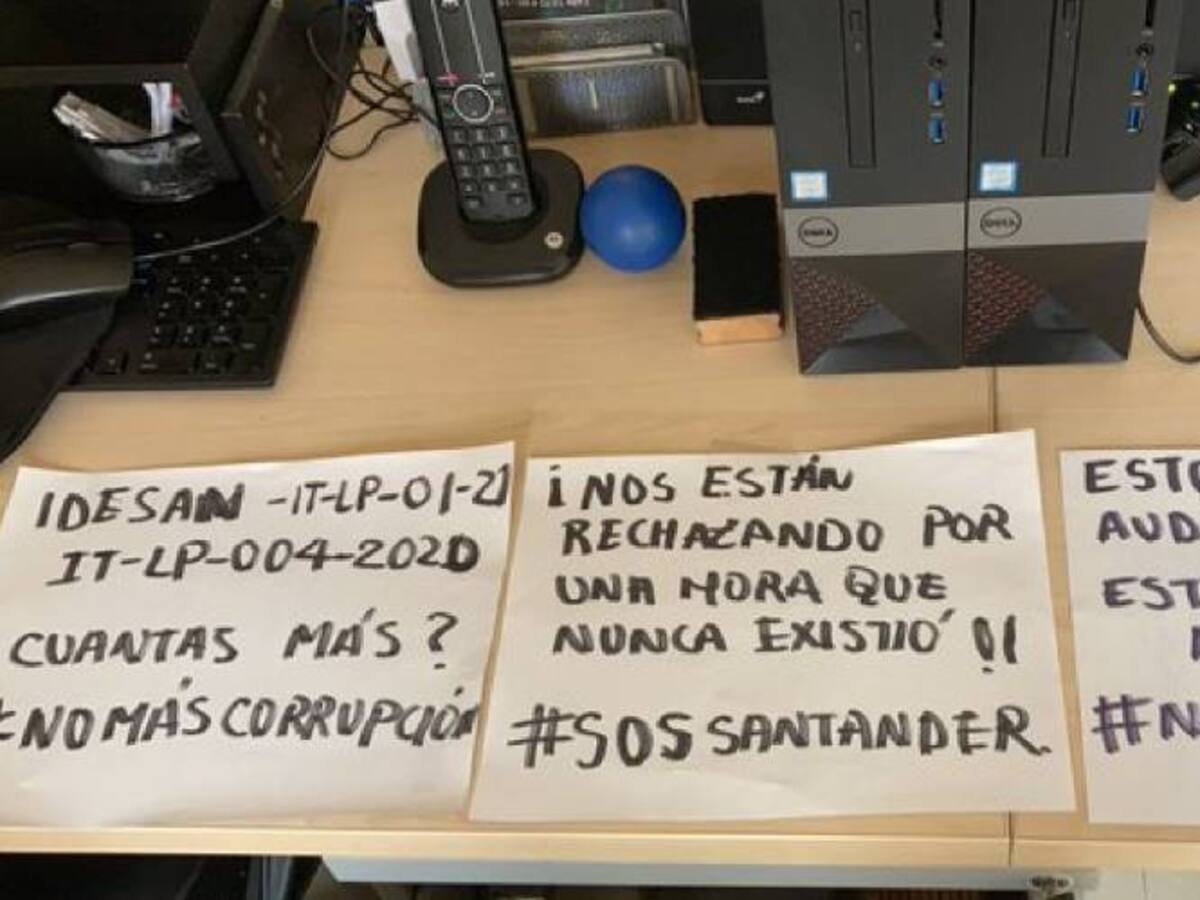 IDESAN -IT-LP-01-21
IT-LP-004-2020
CUANTAS MÁS?
#NOMÁSCORRUPCIÓN
¡NOS ESTÁN
RECHAZANDO POR
UNA MORA QUE
NUNCA EXISTIÓ !!
#SOSSANTANDER.
ESTO
AUD
EST
#N
DELL
DELL